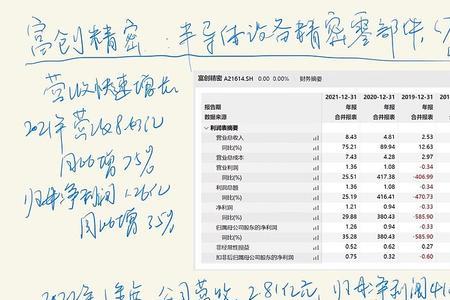 富创精密：半导体设备精密零部件，
营收快速增长
2021年营收8.43亿
同比增75%
归母净利润1.26亿
同比增35%
富创精密 A21614.SH 0.00 0.00% 财务摘要
2021-12-31 2020-12-31 2019-12-31
报告期 年报 年报 年报
数据来源 合并报表 合并报表 合并报表
利润表摘要
营业总收入 8.43 4.81 2.53
同比(%) 75.21 89.94 12.63
营业总成本 7.43 4.28 2.97
营业利润 1.36 1.08 -0.34
同比(%) 25.51 417.38 -406.99
利润总额 1.36 1.08 -0.34
同比(%) 25.19 416.41 -470.73
净利润 1.21 0.94 -0.33
同比(%) 29.88 380.43 -585.90
归属母公司股东的净利润 1.26 0.94 -0.33
同比(%) 35.28 380.43 -585.90
非经常性损益 0.52 0.62 0.27
扣非后归属母公司股东的净利润 0.75 0.32 -0.60
2022年1季度，公司营收2.81亿元，归母净利润